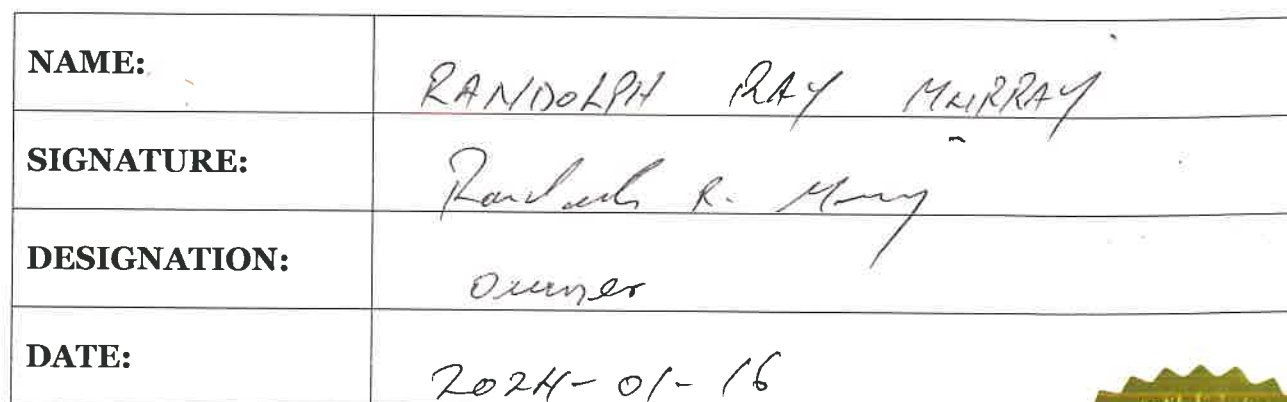 NAME: RANDOLPH RAY MURRAY
SIGNATURE: Randolph R. Murray
DESIGNATION: Owner
DATE: 2024-01-16